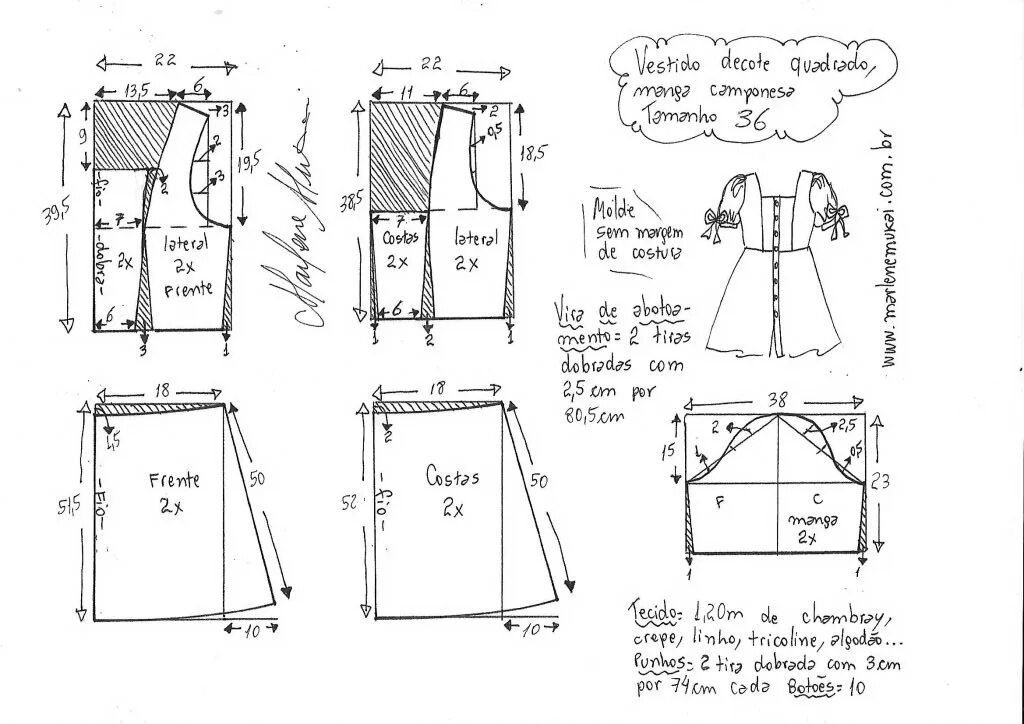 22
13,5
6
3
9
2
3
19,5
39,5
fio
dobra
2
7
2x
lateral
2x
Frente
6
3
1
22
11
6
2
0,5
18,5
38,5
7
Costas
2x
lateral
2x
6
1
2
1
Vestido decote quadrado,
manga camponesa
Tamanho 36
Molde
sem margem
de costura
www.marlenemukai.com.br
Vira de abotoa-
mento= 2 tiras
dobradas com
2,5cm por
80,5cm
18
1,5
51,5
-Fio-
Frente
2x
50
10
18
2
52
-fio-
Costas
2x
50
10
38
2
2,5
15
1
0,5
23
F
C
manga
2x
1
1
Tecido= 1,20m de chambray,
crepe, linho, tricoline, algodão...
Punhos= 2 tira dobrada com 3cm
por 74cm cada Botões= 10